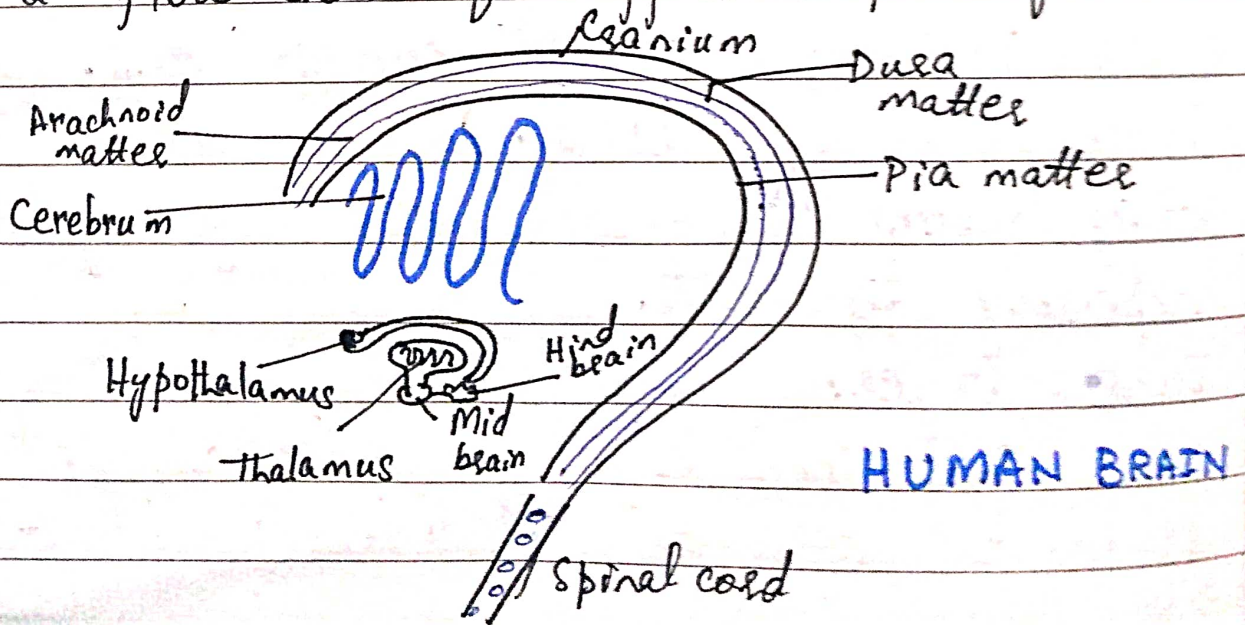 Cranium
Dura
matter
Arachnoid
matter
Pia matter
Cerebrum
Hind
brain
Hypothalamus
Mid
brain
Thalamus
HUMAN BRAIN
Spinal cord